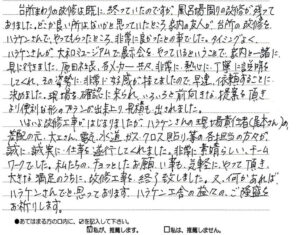 台所まわりの改修は既に終っていたのですが、風呂場周りの改修が残って
おりました。どこか良い所はないかと思っていたところ家内の友人が、台所の改修を
ハラケンさんで、やってもらったところ、非常に良かったとの事でした。タイミングよく、
ハラケンさんが大和ミュージアムで展示会をやっているということで、家内と一緒に
見に行きました。原田社長、各メーカーさん、非常に熱心に、丁寧に説明を
してくれ、その姿勢に非常に感心させられましたので早速、依頼することに
決めました。現場を確認に来られ、いろいろ前向きな提案を頂き
より便利な形のプランが出来上り見積も出されました。
いよいよ改修工事がはじまりましたが、ハラケンさんの現場監督
の元、大工さん、電気、水道、ガス、クロス貼り等の各担当の方々が
誠に、誠実に仕事を遂行してくれました。非常に素晴らしい、チーム
ワークでした。私たちの、ちょっとしたお願い事も、気軽にやって頂き、
大きな満足のうちに、改修工事を終了致しました。又、何かあれば
ハラケンさんでと思っております。ハラケン工舎の益々の、ご隆盛を
お祈りします。
●あてはまる方の□内に、☑を記入して下さい。
☑私が、推薦します。 □私は、推薦しません。